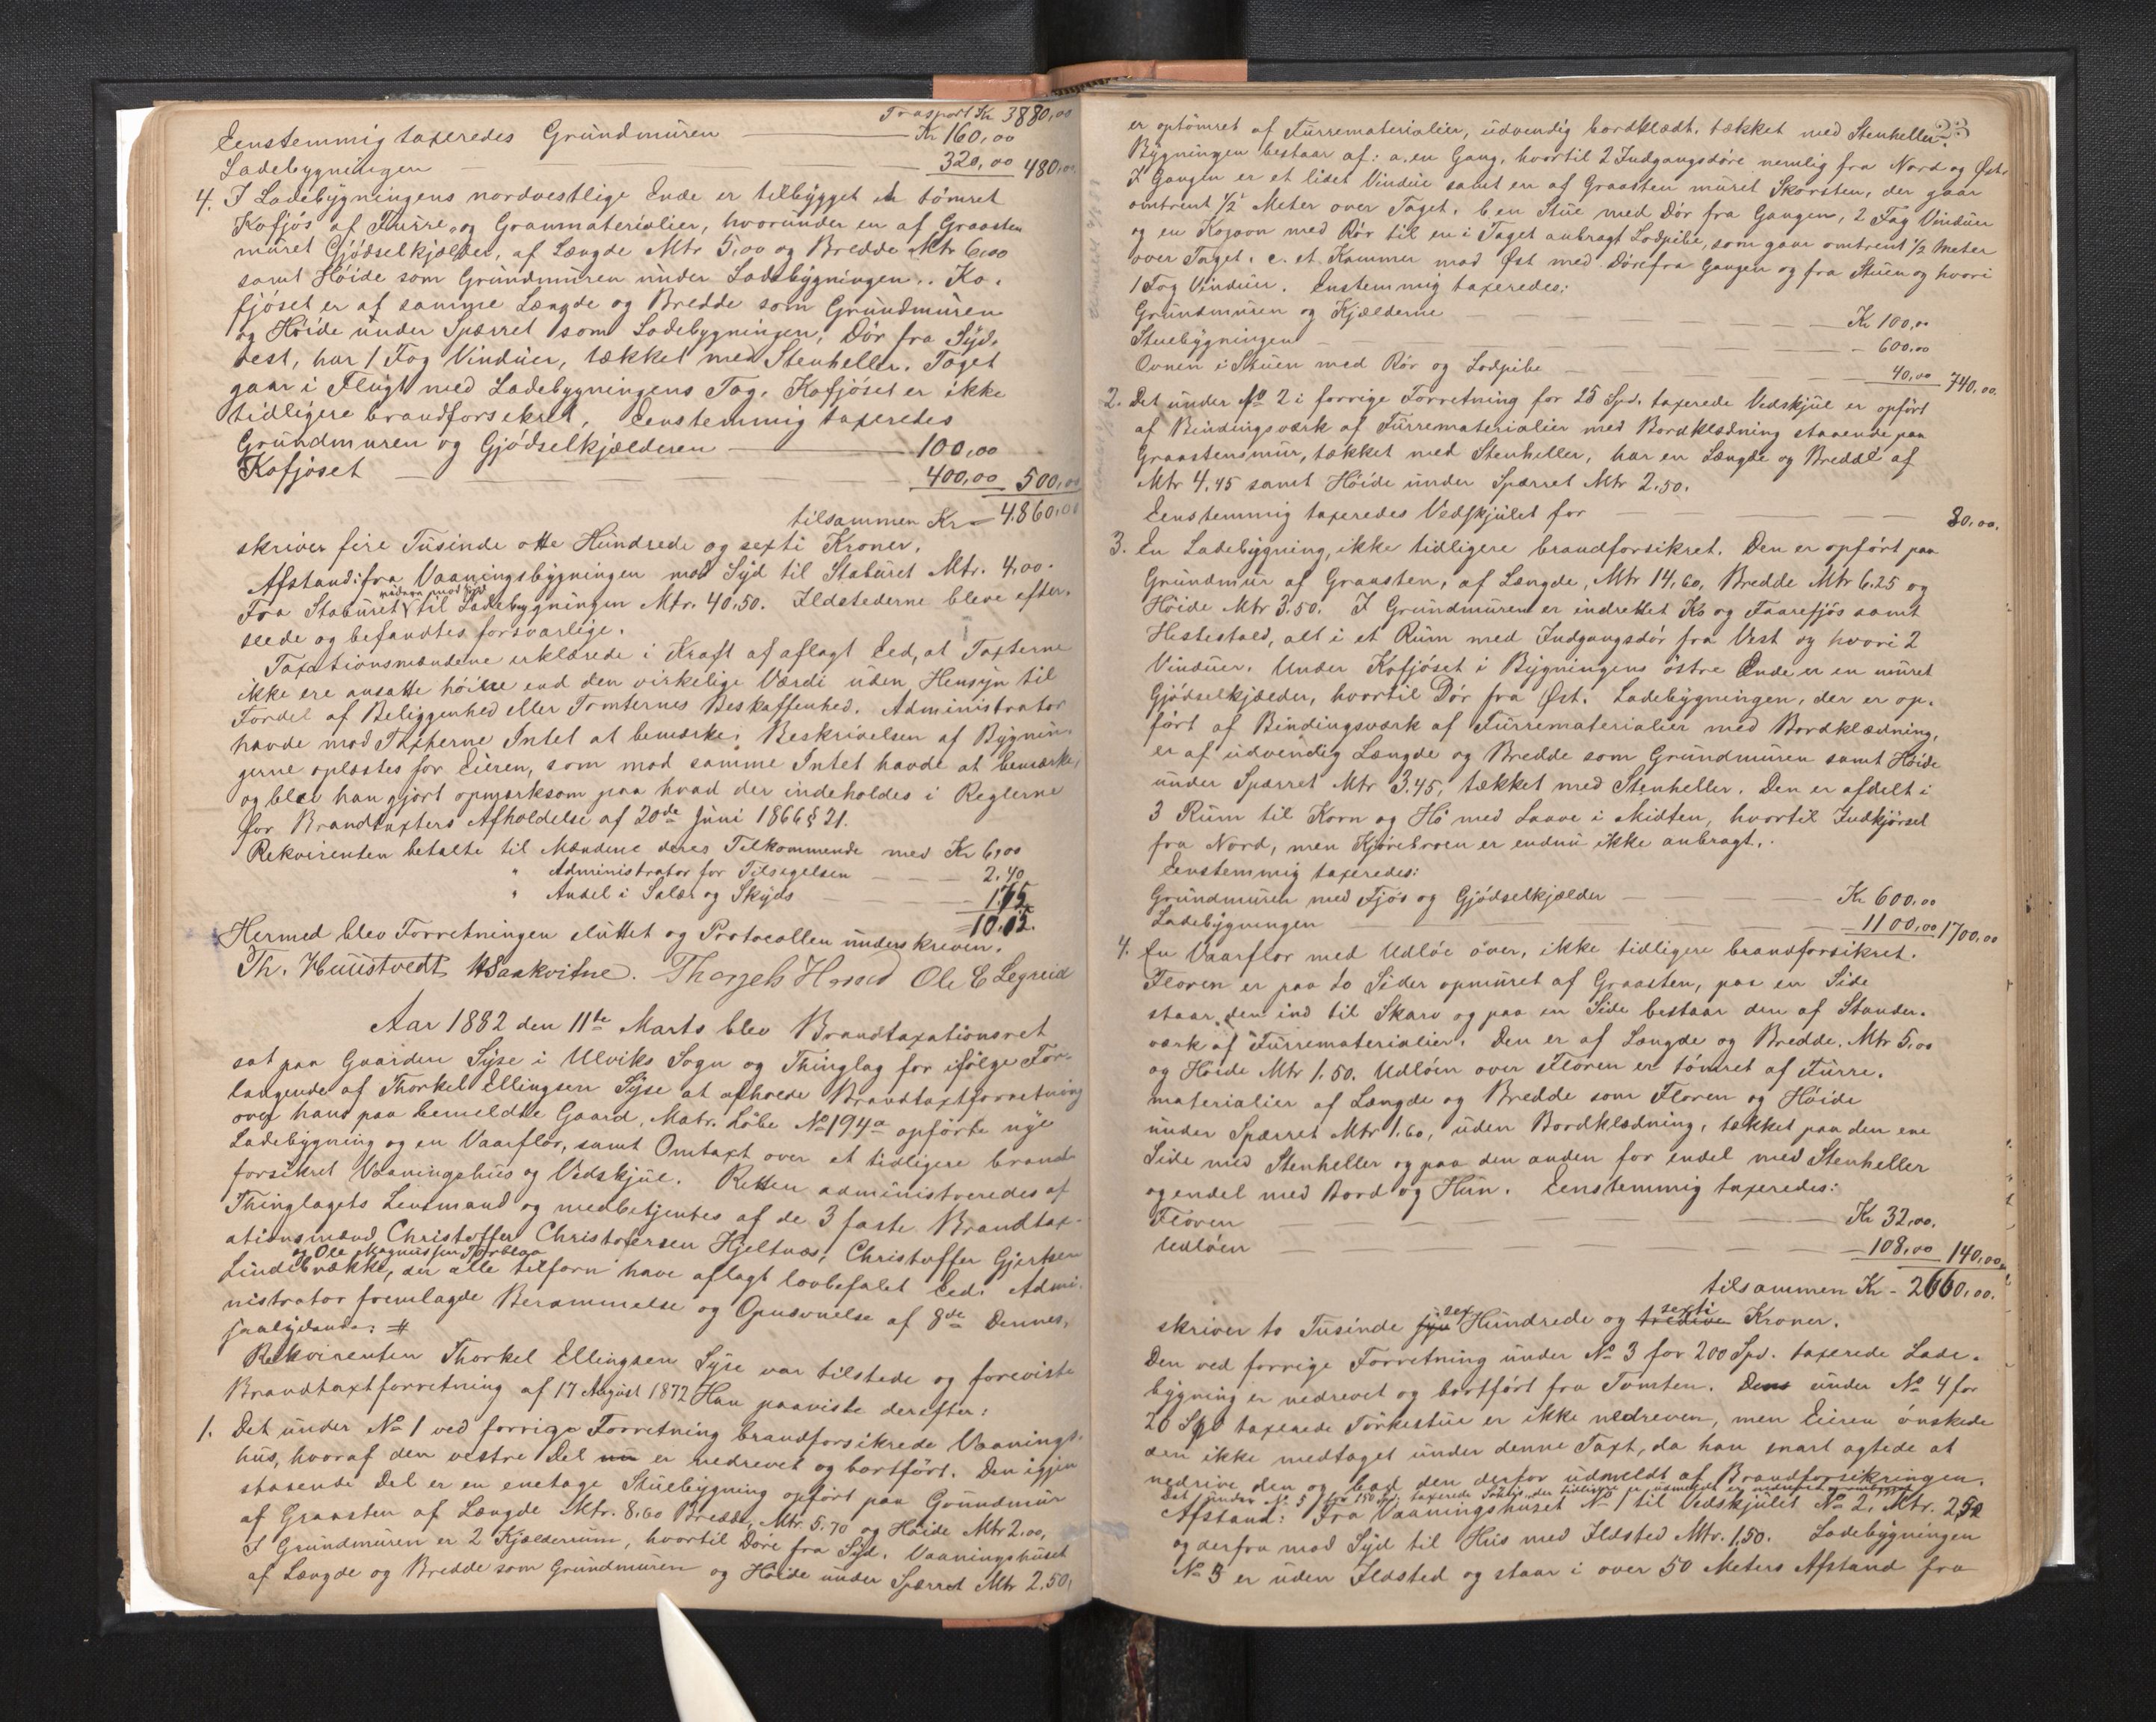 Trasport Kr 3880,00
Eenstemmig taxeredes Grundmuren — Kr 160,00
Ladebygningen — 320,00 480,00
4. I Ladebygningens nordvestlige Ende er tilbygget et tömret
Kofjös af Furre og Granmaterialier, hvorunder en af Graasten
muret Gjödselkjælder, af Længde Mtr 5,00 og Bredde Mtr 6,00
samt Höide som Grundmuren under Ladebygningen. Ko-
fjöset er af samme Længde og Bredde som Grundmuren
og Höide under Spærret som Ladebygningen, Dör fra Syd-
vest, har 1 Fag Vinduer, tækket med Stenheller. Taget
gaar i Flugt med Ladebygningens Tag. Kofjöset er ikke
tidligere brandforsikret. Eenstemmig taxeredes
Grundmuren og Gjödselkjælderen — 100,00
Kofjöset — 400,00 500,00
tilsammen Kr — 4860,00
skriver fire Tusinde otte Hundrede og sexti Kroner.
Afstand: fra Vaaningsbygningen mod Syd til Staburet Mtr. 4,00.
videre mod Syd
Fra Staburet til Ladebygningen Mtr. 40.50. Ildstederne bleve efter-
seede og befandtes forsvarlige.
Taxationsmændene erklærede i Kraft af aflagt Eed, at Taxterne
ikke ere ansatte höiere end den virkelige Værdi uden Hensyn til
Fordel af Beliggenhed eller Tomternes Beskaffenhed. Administrator
havde mod Taxterne Intet at bemærke. Beskrivelsen af Bygnin-
gerne oplæstes for Eieren, som mod samme Intet havde at bemærke,
og blev han gjort opmærksom paa hvad der indeholdes i Reglerne
for Brandtaxters Afholdelse af 20de Juni 1866 § 21.
Rekvirenten betalte til Mændene deres Tilkommende med Kr 6,00
" Administrator for Tilsigelsen — 2.40
" Andel i Salær og Skyds — 1.75
10.15.
Hermed blev Forretningen sluttet og Protocollen underskreven.
Th. Huustvedt. Saakvitne. Ole E Legreid
Aar 1882 den 11te Marts blev Brandtaxationsret
sat paa Gaarden Syse i Ulviks Sogn og Thinglag for ifölge For-
langende af Thorkel Ellingsen Syse at afholde Brandtaxtforretning
over hans paa bemeldte Gaard, Matr. Löbe No 194a opförte nye
Ladebygning og en Vaarflor, samt Omtaxt over et tidligere brand-
forsikret Vaaningshus og Vedskjul. Retten administreredes af
Thinglagets Lensmand og medbetjentes af de 3 faste Brandtax-
ationsmænd Christoffer Christofersen Hjeltnæs, Christoffer Gjertsen
og Ole Magnussen Torblaa
Lindebrække, der alle tilforn have aflagt lovbefalet Eed. Admi-
nistrator fremlagde Berammelse og Opnævnelse af 8de Dennes,
saalydende: #
Rekvirenten Thorkel Ellingsen Syse var tilstede og foreviste
Brandtaxtforretning af 17 August 1872 Han paaviste derefter:
1. Det under No 1 ved forrige Forretning brandforsikrede Vaanings-
hus, hvoraf den vestre Del nu er nedrevet og bortfört. Den igjen
staaende Del er en enetage Stuebygning opfört paa Grundmur
af Graasten af Længde Mtr. 8.60 Bredde, Mtr. 5.70 og Höide Mtr 2.00,
I Grundmuren er 2 Kjælderrum, hvortil Döre fra Syd. Vaaningshuset
af Længde og Bredde som Grundmuren og Höide under Spærret Mtr 2.50,
23
er optömret af Furrematerialier, udvendig bordklædt, tækket med Stenheller.
Bygningen bestaar af: a. en Gang, hvortil 2 Indgangsdöre nemlig fra Nord og Öst.
I Gangen er et lidet Vindue samt en af Graasten muret Skorsten, der gaar
omtrent 1/2 Meter over Taget. b. en Stue med Dör fra Gangen, 2 Fag Vinduer
og en Kogovn med Rör til en i Taget anbragt Lodpibe, som gaar omtrent 1/2 Meter
over Taget. c. et Kammer mod Øst med Döre fra Gangen og fra Stuen og hvori
1 Fag Vinduer. Enstemmig taxeredes:
Grundmuren og Kjælderne — Kr 100,00
Stuebygningen — 600.00
Ovnen i Stuen med Rör og Lodpibe — 40,00 740,00.
2. Det under No 2 i forrige Forretning for 25 Spd. taxerede Vedskjul er opfört
af Bindingsværk af Furrematerialier med Bordklædning staaende paa
Graastensmur, tækket med Stenheller, har en Længde og Bredde af
Mtr 4.45 samt Höide under Spærret Mtr 2.50.
Eenstemmig taxeredes Vedskjulet for — 80.00.
3. En Ladebygning, ikke tidligere brandforsikret. Den er opfört paa
Grundmur af Graasten, af Længde, Mtr 14,60, Bredde Mtr 6.25 og
Höide Mtr 3.50. I Grundmuren er indrettet Ko og Faarefjös samt
Hestestald, alt i et Rum med Indgangsdör fra Vest og hvori 2
Vinduer. Under Kofjöset i Bygningens östre Ende er en muret
Gjödselkjælder, hvortil Dör fra Øst. Ladebygningen, der er op-
fört af Bindingsværk af Furrematerialier med Bordklædning,
er af udvendig Længde og Bredde som Grundmuren samt Höide
under Spærret Mtr 3.45, tækket med Stenheller. Den er afdelt i
3 Rum til Korn og Hö med Laave i Midten, hvortil Indkjörsel
fra Nord, men Kjörebroen er endnu ikke anbragt.
Eenstemmig taxeredes:
Grundmuren med Fjös og Gjödselkjælder — Kr 600.00
Ladebygningen — 1100,00 1700,00
4. En Vaarflor med Udlöe over, ikke tidligere brandforsikret.
Floren er paa to Sider opmuret af Graasten, paa en Side
staar den ind til Skarv og paa en Side bestaar den af Stander-
værk af Furrematerialier. Den er af Længde og Bredde, Mtr 5,00
og Höide Mtr 1.50. Udlöen over Floren er tömret af Furre-
materialier af Længde og Bredde som Floren og Höide
under Spærret Mtr 1.60, uden Bordklædning, tækket paa den ene
Side med Stenheller og paa den anden for endel med Stenheller
og endel med Bord og Hun. Eenstemmig taxeredes:
Floren — Kr 32,00.
Udlöen — 108,00 140,00
tilsammen Kr - 2660,00.
sex sexti
skriver to Tusinde syv Hundrede og tredive Kroner.
Den ved forrige Forretning under No 3 for 200 Spd. taxerede Lade-
bygning er nedrevet og bortfört fra Tomten. Dens under No 4 for
20 Spd taxerede Törkestue er ikke nedreven, men Eieren önskede
den ikke medtaget under denne Taxt, da han snart agtede at
nedrive den og bad den derfor udmeldt af Brandforsikringen.
Det under No 5 for 150 Spd. taxerede
Afstand: Fra Vaaningshuset No 1 til Vedskjulet No 2, Mtr. 2,50
og derfra mod Syd til Hus med Ildsted Mtr. 1,50. Ladebygningen
No 3 er uden Ildsted og staar i over 50 Meters Afstand fra